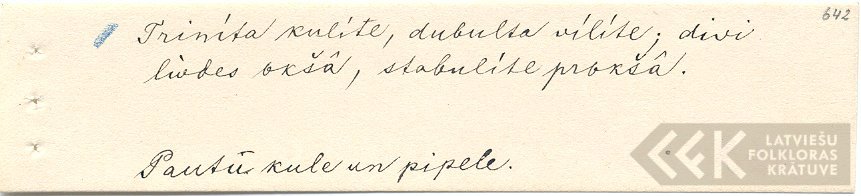 642
Trinîta kulîte, dubulta vîlîte; divi
lodes okšâ, stabulîte prokšâ.
Pautu kule un pipele.
LFK LATVIEŠU
FOLKLORAS
KRĀTUVE